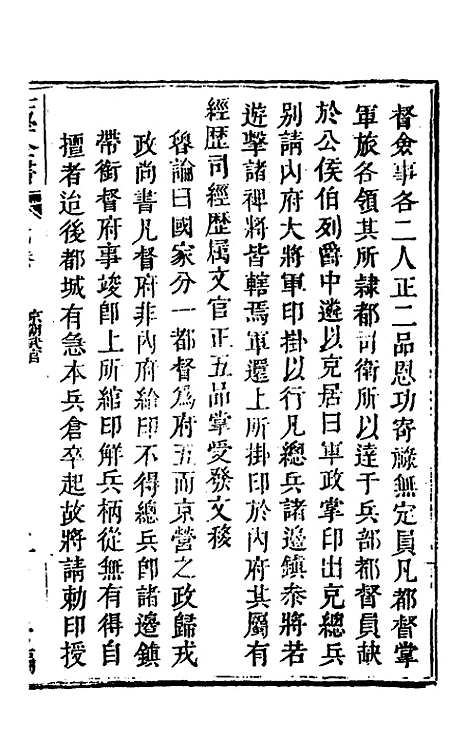 督僉事各二人正二品恩功寄祿無定員凡都督掌
軍旅各領其所隸都司衛所以達于兵部都督員缺
於公侯伯列爵中遴以克居曰軍政掌印出克總兵
別請內府大將軍印掛以行凡總兵諸邊鎮叅將若
遊擊諸裨將皆轄焉軍還上所掛印於內府其屬有
經歷司經歷屬文官正五品掌受發文移
魯論曰國家分一都督為府五而京營之政歸戎
政尚書凡督府非內府給印不得總兵卽諸邊鎮
帶銜督府事竣卽上所綰印解兵柄從無有得自
擅者迨後都城有急本兵倉卒起故將請勅印授
京朝武官